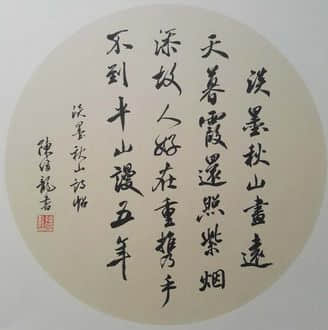 淡墨秋山畫遠
天暮霞還照紫烟
添故人好在重携手
不到平山謾五年
淡墨秋山詩帖
陳 龍書